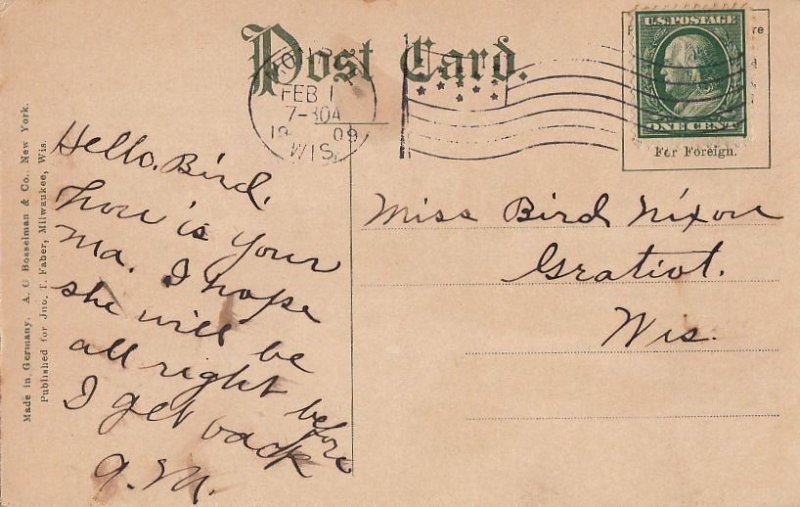 Post Card.
FEB 1
7-30A
19 09
WIS.
U.S. POSTAGE
ONE CENT
For Foreign.
Made in Germany. A. C. Bosselman & Co., New York.
Published for Jno. T. Faber, Milwaukee, Wis.
Hello, Bird,
how is your
Ma. I hope
she will be
all right before
I get back
A.M.
Miss Bird Nixon
Gratiot.
Wis.